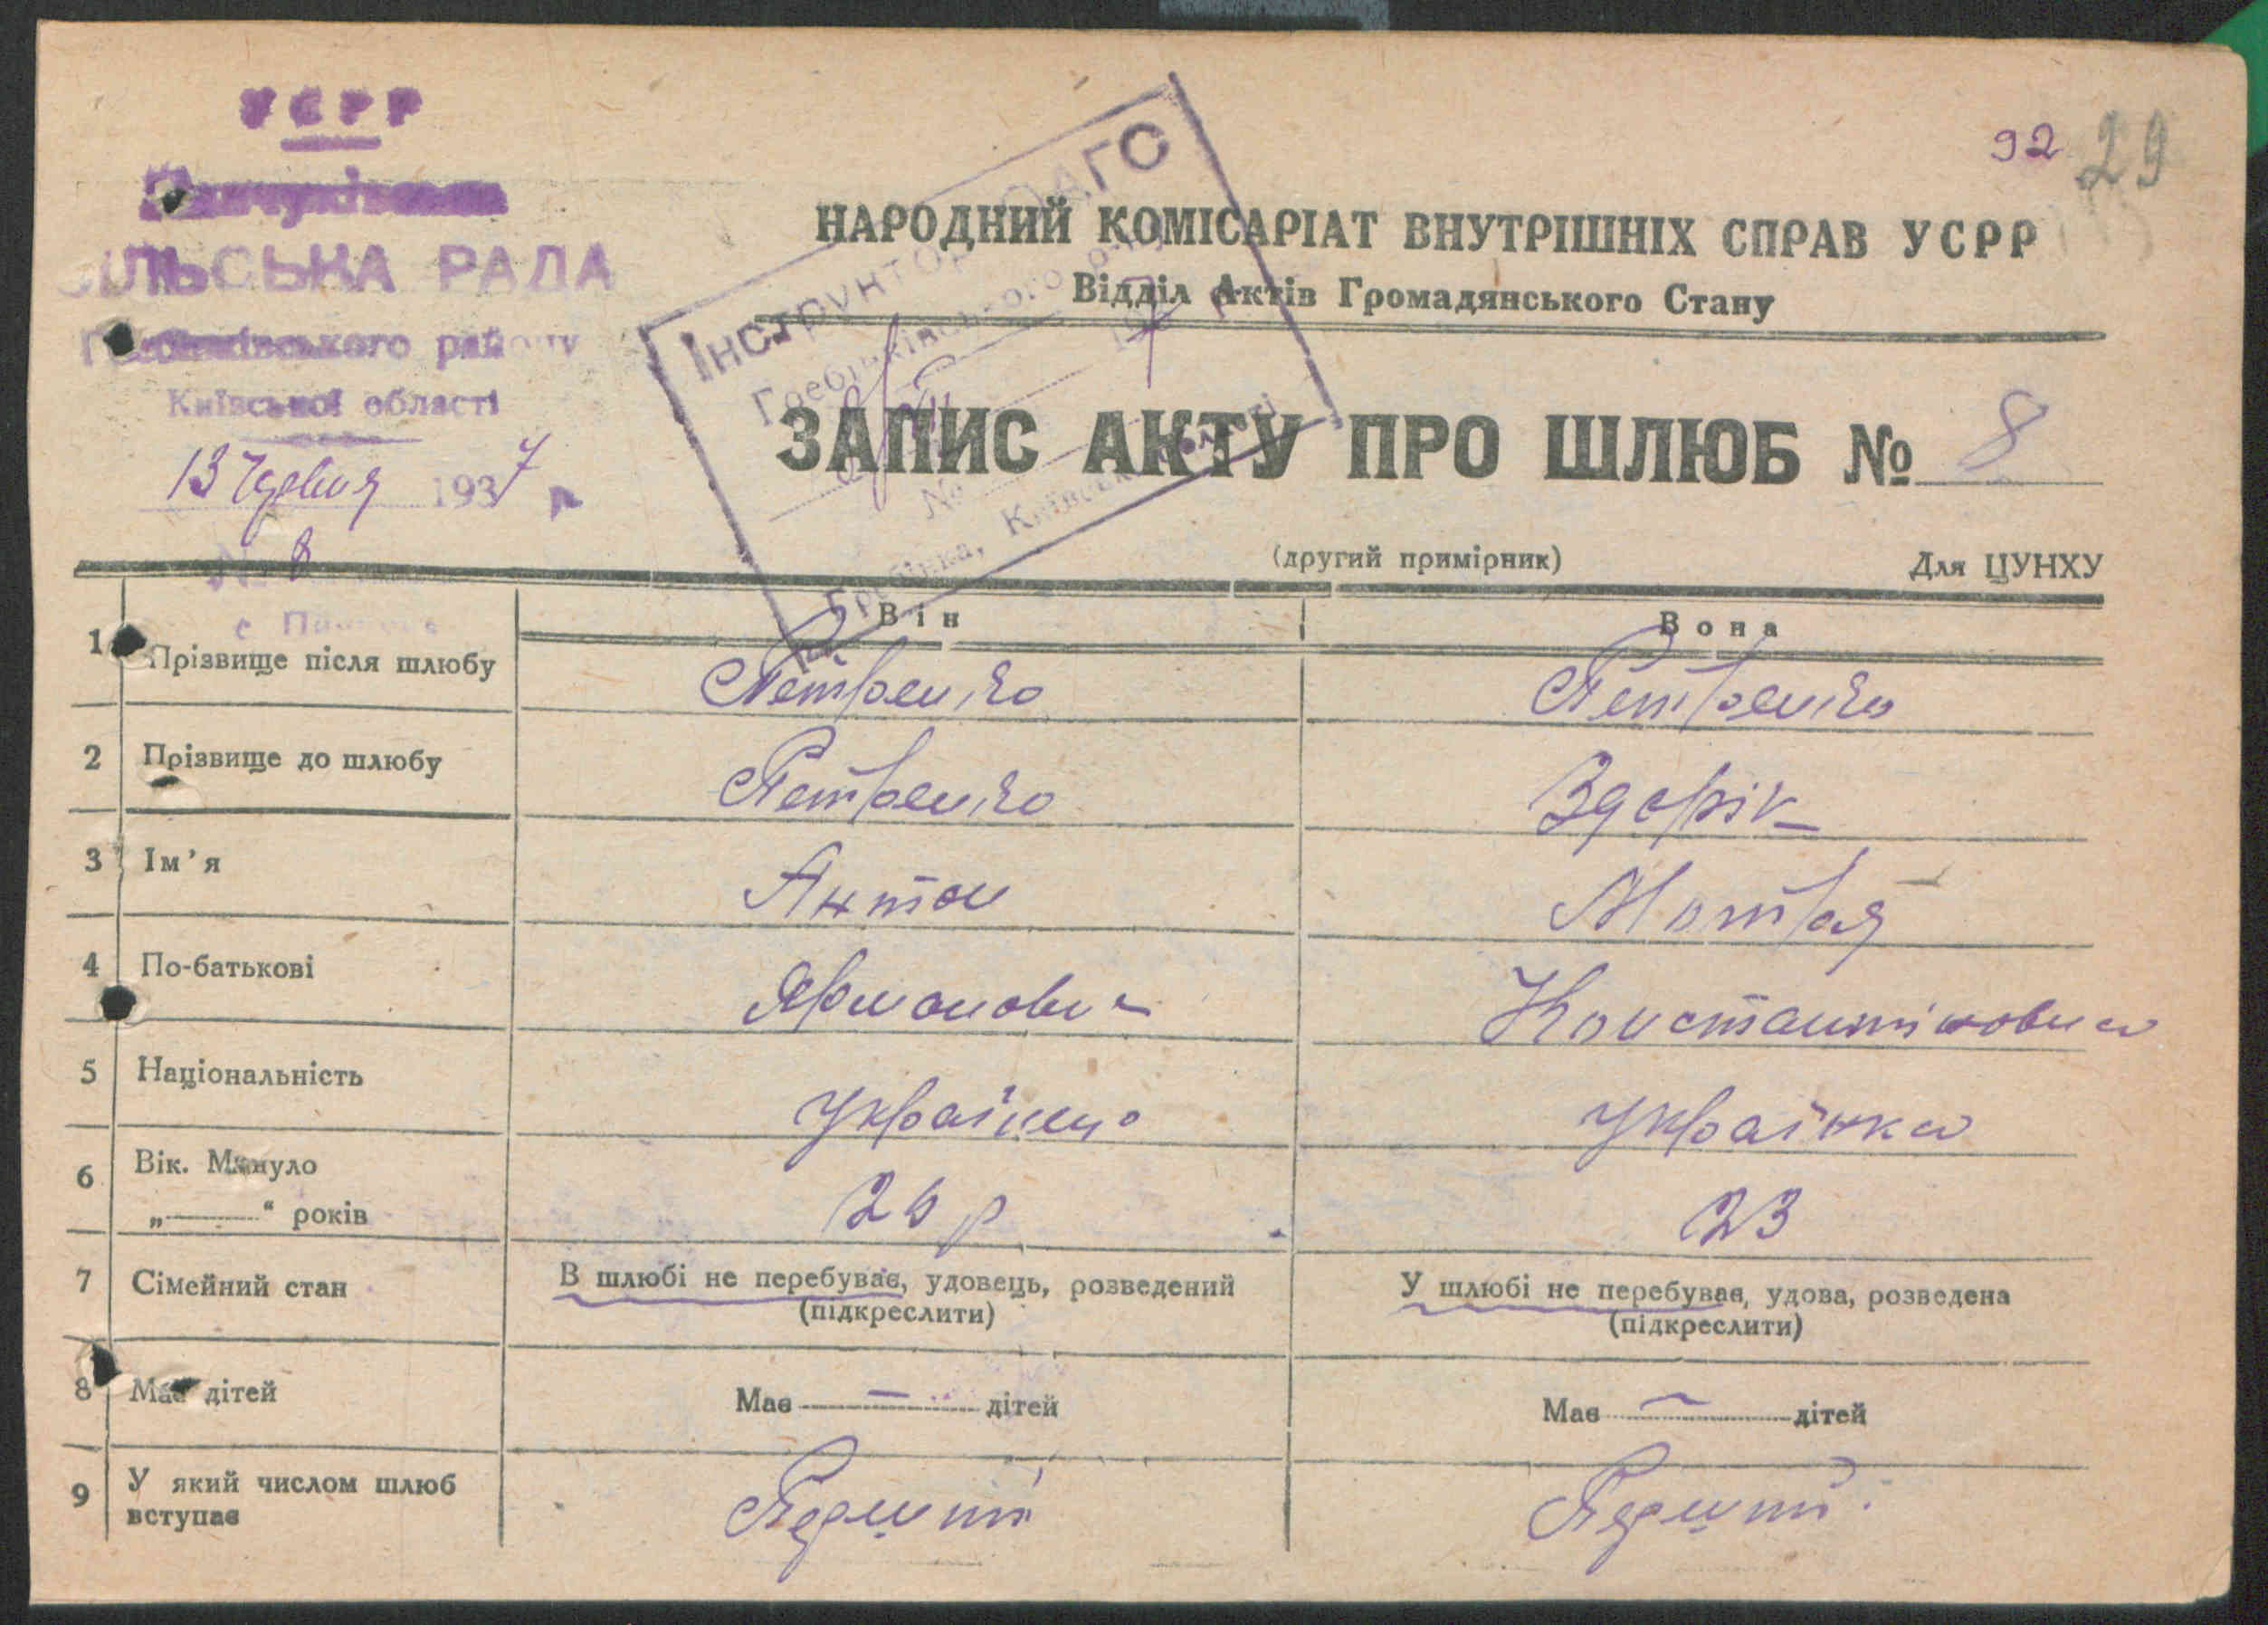 УСРР
СІЛЬСЬКА РАДА
Гребінківського району
Київської області
13 червня 1937 р
№ 8
92 29
Інструктор ЗАГС
Гребінківського
№
Гребінка, Київської області
НАРОДНИЙ КОМІСАРІАТ ВНУТРІШНІХ СПРАВ УСРР
Відділ Актів Громадянського Стану
ЗАПИС АКТУ ПРО ШЛЮБ № 8
(другий примірник) Для ЦУНХУ
Він Вона
1 Прізвище після шлюбу Петренко Петренко
2 Прізвище до шлюбу Петренко Здорік
3 Ім'я Антон Мотря
4 По-батькові Ярмонович Константіновна
5 Національність Українец Українка
6 Вік. Минуло
„——“ років 26 р 23
7 Сімейний стан В шлюбі не перебуває, удовець, розведений У шлюбі не перебуває, удова, розведена
(підкреслити) (підкреслити)
8 Має дітей Має — дітей Має — дітей
9 У який числом шлюб
вступає Перший Перший